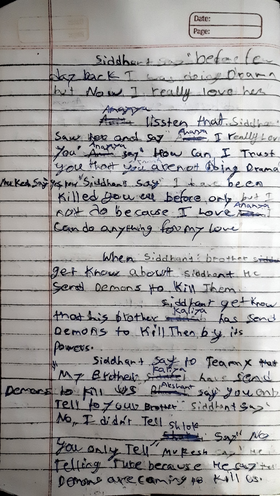 Date:
Page:
Siddhant say "before
day back I was doing Drama
but Now I really love her
Ananya
lissten that Siddhant
saw her and say Ananya I really Love
You" Ananya say" How can I Trust
you that you are not doing Drama
Mukesh Say yes for Siddhant say I have been
Killed you all before only but I
not do because I Love Ananya I
can do anything for my love
When Siddhant brother
get Know about siddhant He
send Demons to Kill Them.
Siddhant get Know
that his brother Kaliya has send
Demons to Kill Then by its
Powers.
Siddhant say to Team x that
My Brother Kaliya has send
Demons to Kill us Akshant say you only
Tell to your Brother" Siddhant Say"
No, I didn't Tell Shlok say" No
You only Tell Mukesh say" He
Telling True because He say that
Demon are coming to kill us.